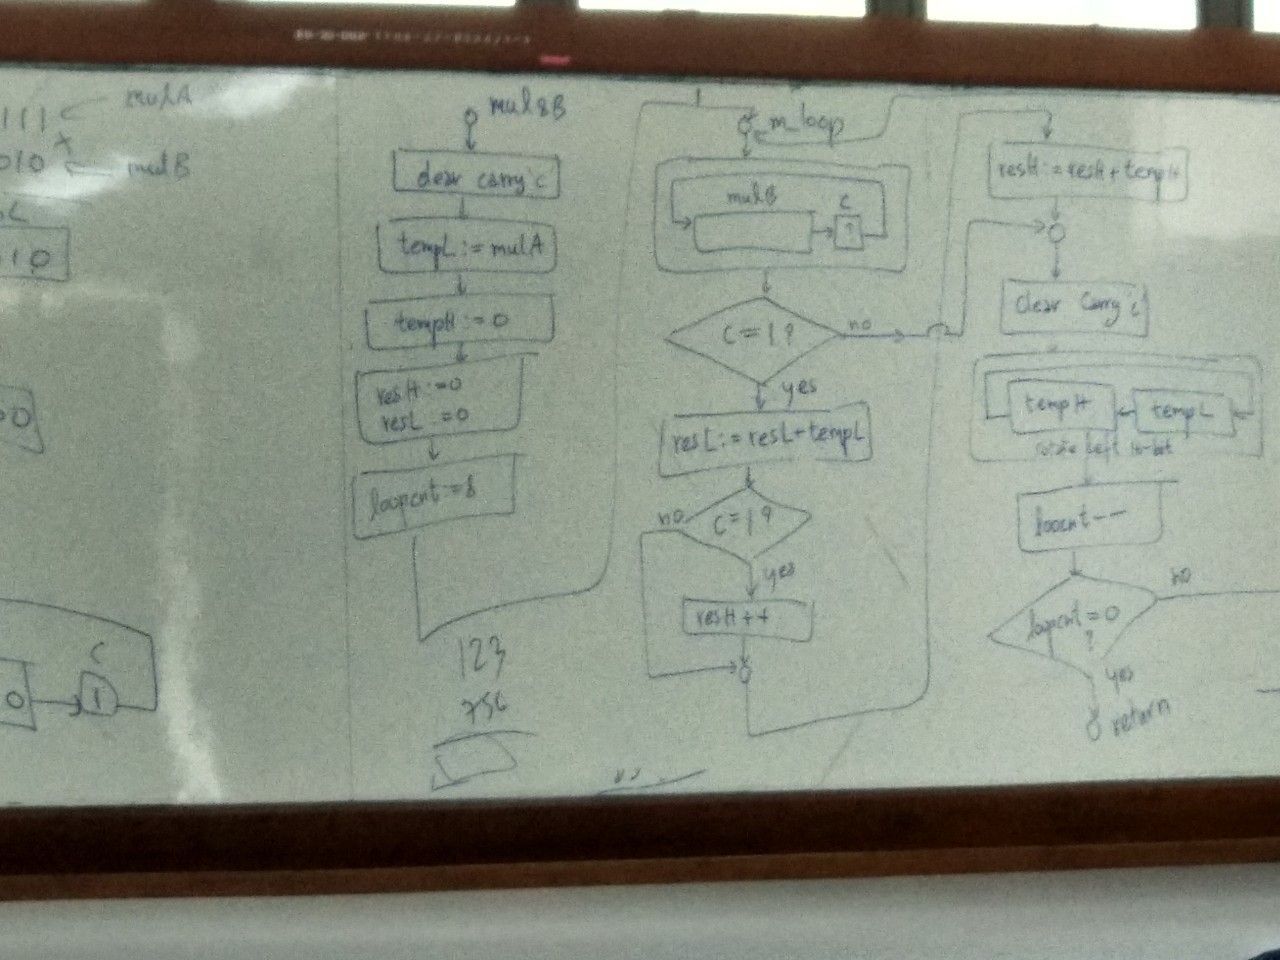 111
mulA
x
010
mulB
10
0
C
0
1
mul8B
clear carry c
tempL := mulA
tempH := 0
resH := 0
resL := 0
loopcnt := 8
123
756
m_loop
mulB
C
?
C = 1 ?
no
yes
resL := resL + tempL
C = 1 ?
no
yes
resH ++
resH := resH + tempH
clear carry c
tempH
tempL
rotate left 16-bit
loopcnt --
loopcnt = 0
?
no
yes
return